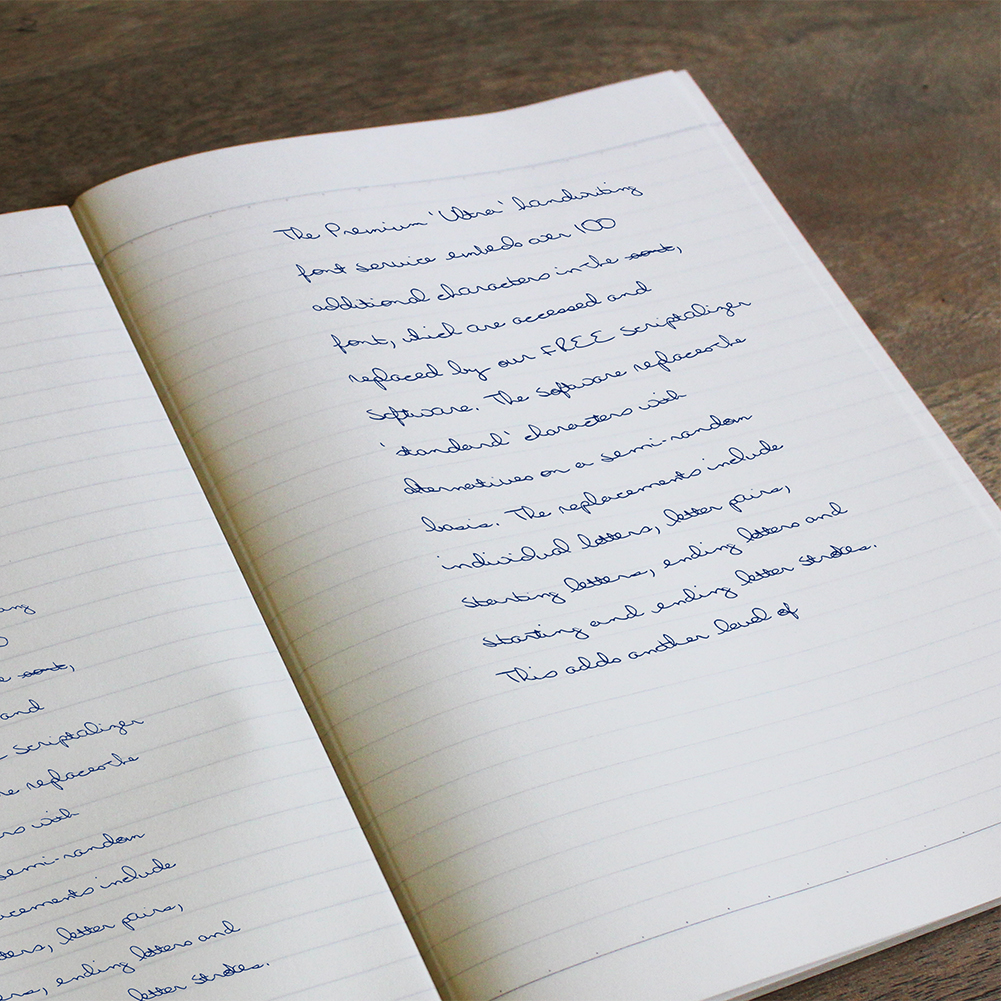 ang
0
e sont,
and
Scriptalizer
re replaces the
rs with
semi-random
acements include
ters, letter pairs,
rs, ending letters and
letter strokes.
The Premium 'Ultra' handwriting
font service embeds over 100
additional characters in the sont,
font, which are accessed and
replaced by our FREE Scriptalizer
Software. The Software replaces the
'standard' characters with
alternatives on a semi-random
basis. The replacements include
individual letters, letter pairs,
starting letters, ending letters and
starting and ending letter strokes.
This adds another level of